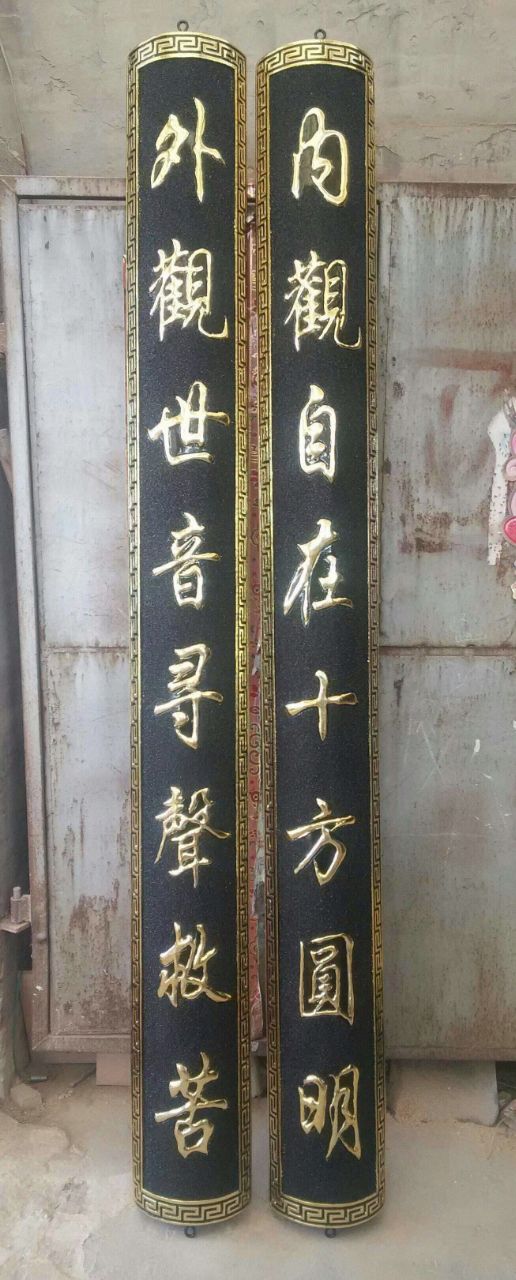 內觀自在十方圓明
外觀世音尋聲救苦